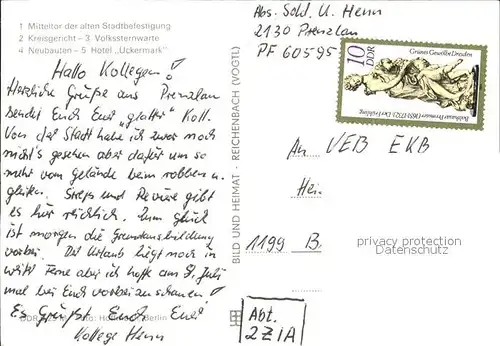 1 Mitteltor der alten Stadtbefestigung
2 Kreisgericht – 3 Volkssternwarte
4 Neubauten – 5 Hotel „Uckermark"
Hallo Kollegen!
Herzliche Grüße aus Prenzlau
sendet Euch Euer „glatter" Koll.
Von der Stadt habe ich zwar noch
nicht's gesehen aber dafür um so
mehr vom Gelände beim robben u.
gleiten. Streß und Reviere gibt
es hier reichlich. Zum Glück
ist morgen die Grundausbildung
vorbei. Der Urlaub liegt noch in
weiter Ferne aber ich hoffe am 9. Juli
mal bei Euch vorbeizuschauen!
Es Grüßt Euch Euer
Kollege Henn
Berlin
BILD UND HEIMAT · REICHENBACH (VOGTL)
Abs. Sold. U. Henn
2130 Prenzlau
PF 60595
10
DDR
Grünes Gewölbe Dresden
Balthasar Permoser (1651-1732): Der Frühling
An VEB EKB
1199 B.
privacy protection
Datenschutz
Abt.
2Z1A